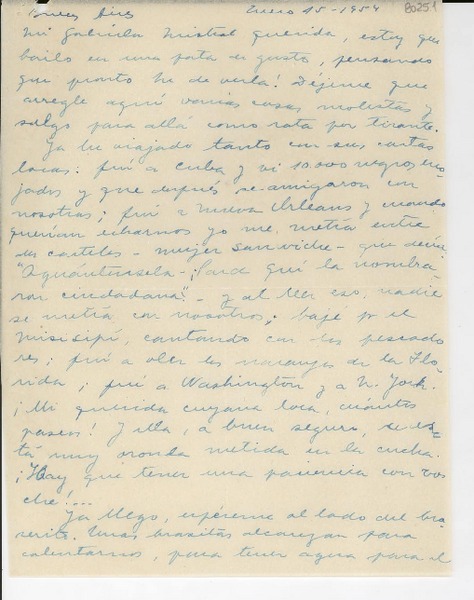 Buenos Aires Enero 15 - 1954 80251
Mi Gabriela Mistral querida, estoy que
bailo en una pata de gusto, pensando
que pronto he de verla! Déjeme que
arregle aquí varias cosas molestas y
salgo para allá como rata por tirante.
Ya he viajado tanto con sus cartas
locas: fuí a Cuba y vi 10.000 negros eno-
jados y que después se amigaron con
nosotras; fuí a Nueva Orleans y cuando
querían echarnos yo me metía entre
dos carteles - mujer sandwiche - que decía
"Aguántensela - ¡Para qué la nombra-
ron ciudadana" - y al leer eso, nadie
se metía con nosotros; bajé por el
Misisipí, cantando con los pescado-
res; fuí a oler los naranjos de la Flo-
rida; fuí a Washington y a N. York.
¡Mi querida cuyana loca, cuántos
paseos! Y ella, a buen seguro, se es-
tá muy oronda metida en la cucha.
¡Hay que tener una paciencia con vos
che!...
Ya llego, espéreme al lado del bra-
serito. Unas brasitas alcanzan para
calentarnos, para tener agua para el